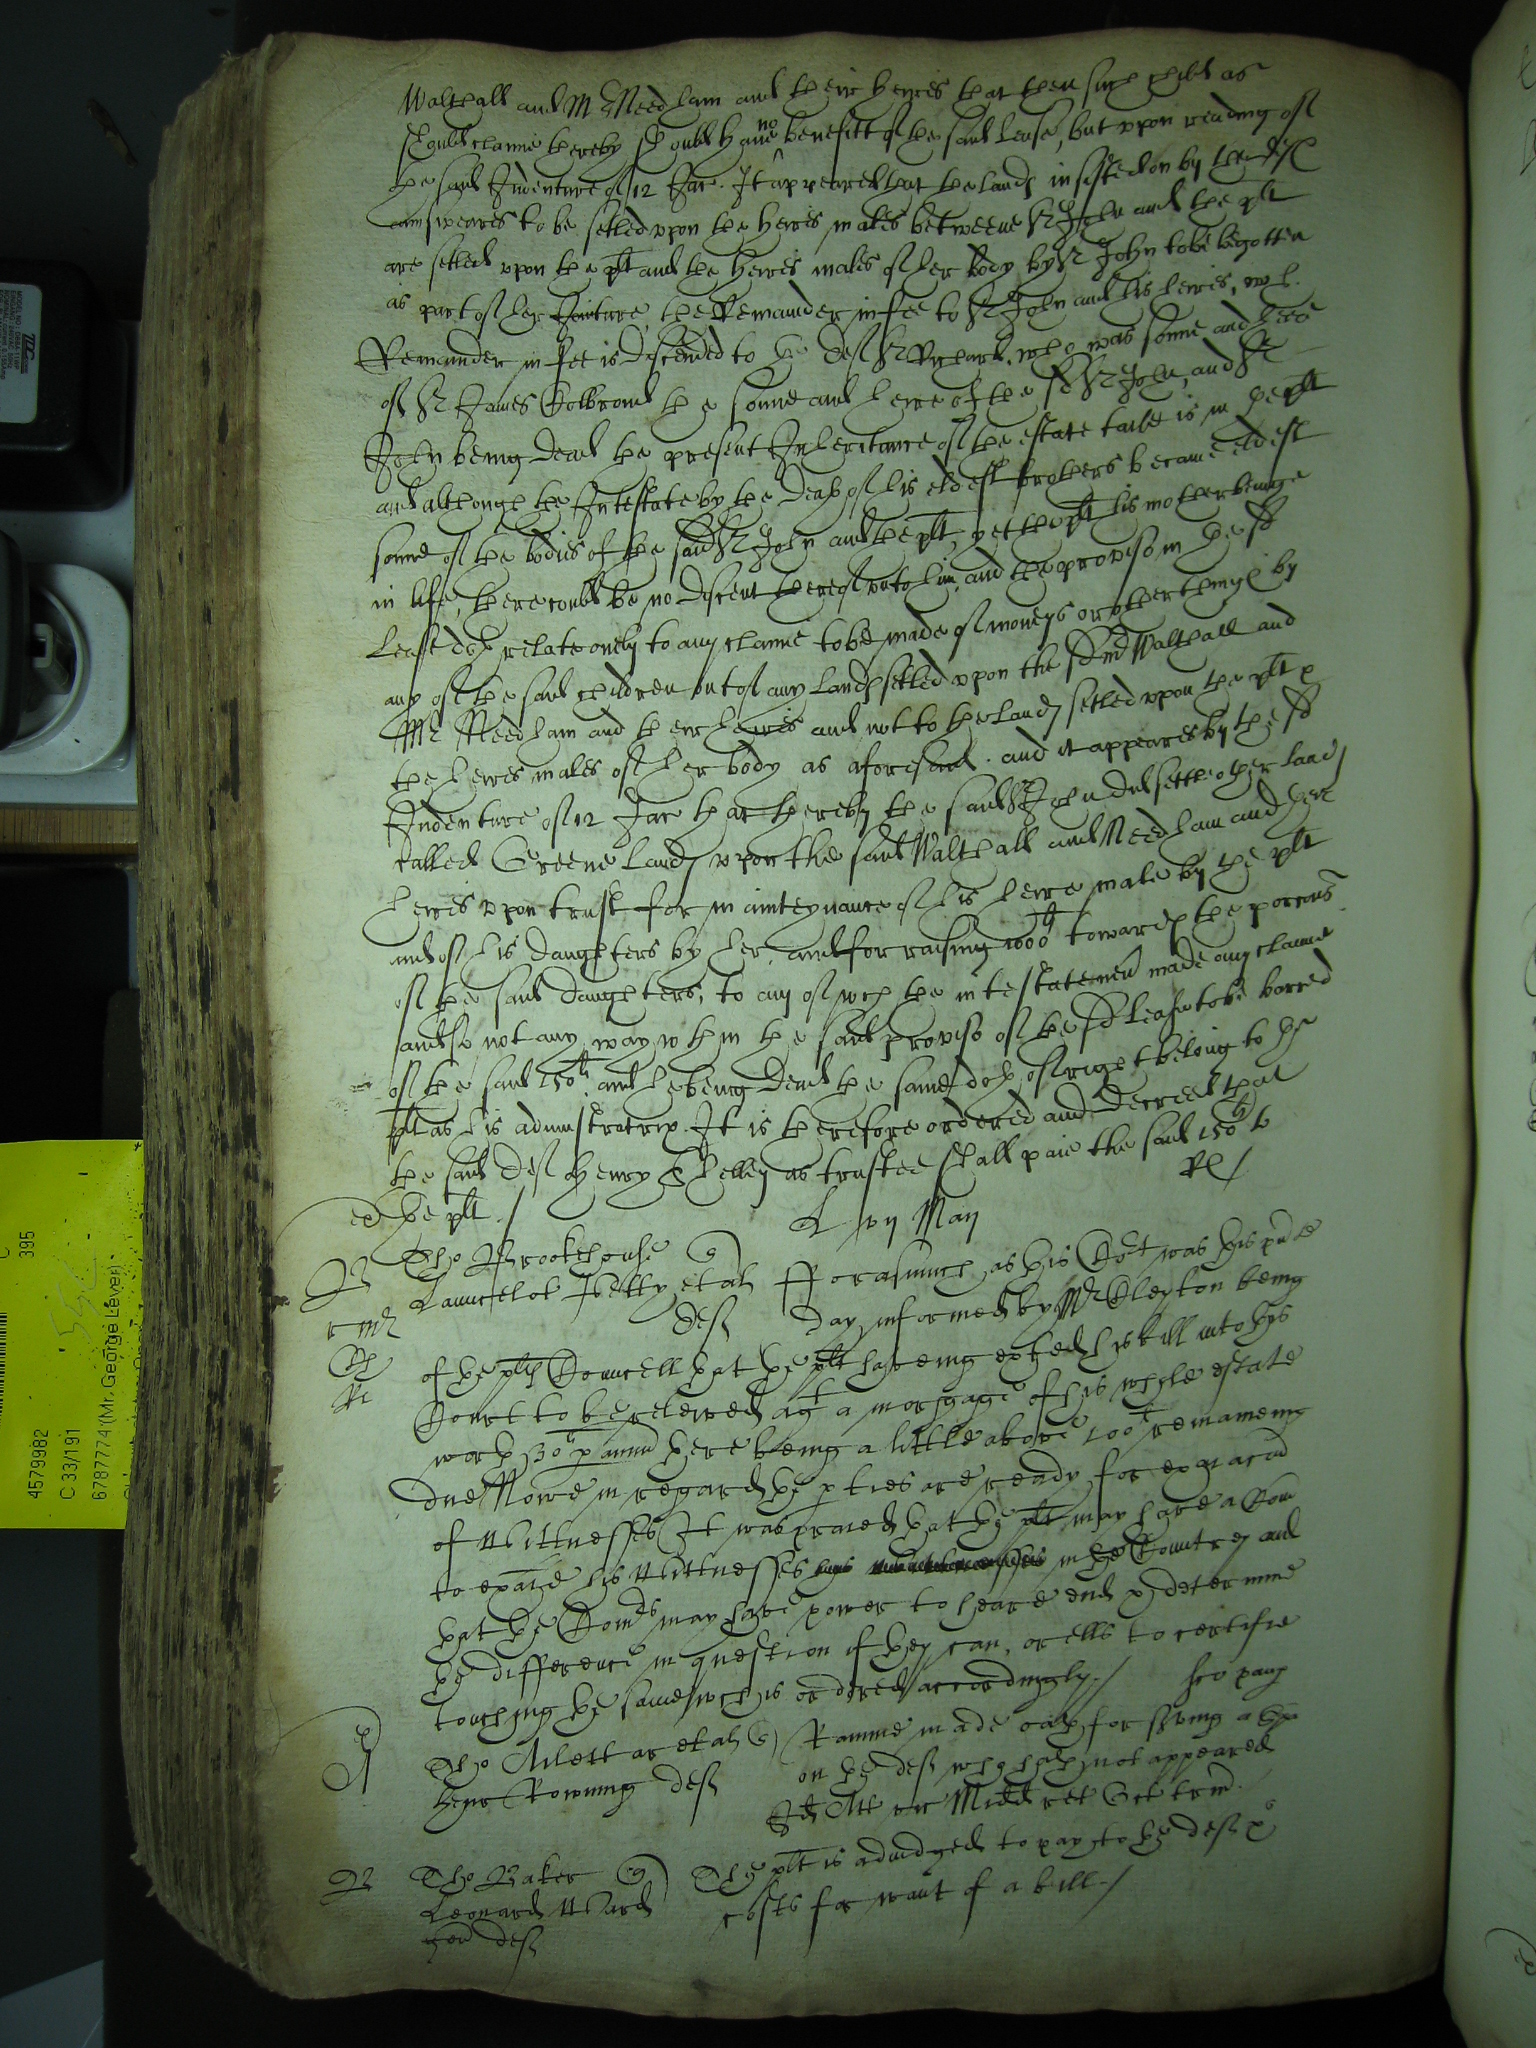 Walthall and Mr Needham and their heires that then such child as
should claime thereby should have no benefitt of the said lease, but upon reading of
the said Indenture of 12 Jac. It appeared that the lands insisted on by the defts
answeares to be setled upon the heires males betweene Sr John and the plt
are setled upon the plt and the heires males of her body by Sr John to be begotten
as part of her Jointure, the Remainder in fee to Sr John and his heires, wch
Remainder in fee is discended to the deft Sr Richard, who was sonne and heire
of Sr James the sonne and heire of the sd Sr John, and Sr
John being dead the present Inheritance of the estate taile is in the plt
and although the Intestate by the death of his eldest brothers became eldest
sonne of the bodies of the said Sr John and the plt, yet the plt his mother being
in life, there could be no discent thereof unto him, and the proviso in the sd
Lease doth relate onely to any claime to be made of moneys or other things by
any of the said children out of any lands setled upon the sd Mr Walthall and
Mr Needham and their heires and not to the lands setled upon the plt &
the heires males of her body as aforesaid. and it appeares by the sd
Indenture of 12 Jac that thereby the said Sr John did settle other lands
called Greene lands upon the said Walthall and Needham and their
heires upon trust for mainteynance of his heire male by the plt
and of his daughters by her, and for raising 1000li towards the porcons
of the said daughters, to any of wch the intestate never made any claime
and so not any way within the said proviso of the sd lease to be barred
of the said 150li, and he being dead the same doth of right belong to the
plt as his administratrix. It is therefore ordered and decreed that
the said deft Henry Shelley as trustee shall paie the said 150li to
the plt./
L vii Maii
B Tho Brookhouse
Launcelot et al Forasmuch as this Cort was this pnte
deft day informed by Mr Clepton being
of the plts Councell that the plt having exhed his bill into this
Court to be releeved agt a morgage of his whole estate
worth 30li p annu there being a little above 100li remaineing
due Nowe in regard the pties are ready for exaiacon
of Wittnesses It was praied that the plt may have a Com
to exaie his Wittnesses in the Countrey and
that the Comrs may have power to heare end & determine
the difference in question if they can, or ells to certifie
touching the same wch is ordered accordingly./
A Tho Aylett ar et al made oath for serving a spa
Henr Rowning deft on the deft who hath not appeared
Id Att vic Midd ret
B Tho Baker The plt is adiudged to pay to the deft
Leonard Ward costs for want of a bill./
gen deft
45799982
C 33/191
6787774 (Mr. George Lever)
395